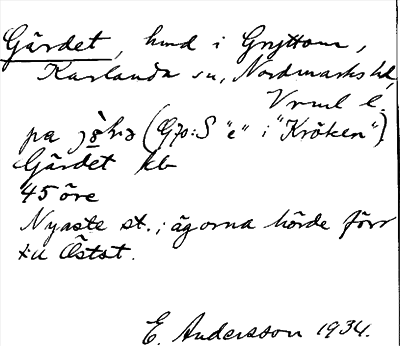 Gärdet, hmd i Gryttom,
Karlanda sn, Nordmarks hd,
Vrml l.
på (G70:S "e" i "Kröken")
Gärdet kb
45 öre
Nyaste st.; ägorna hörde förr
till Östst.
E. Andersson 1934.